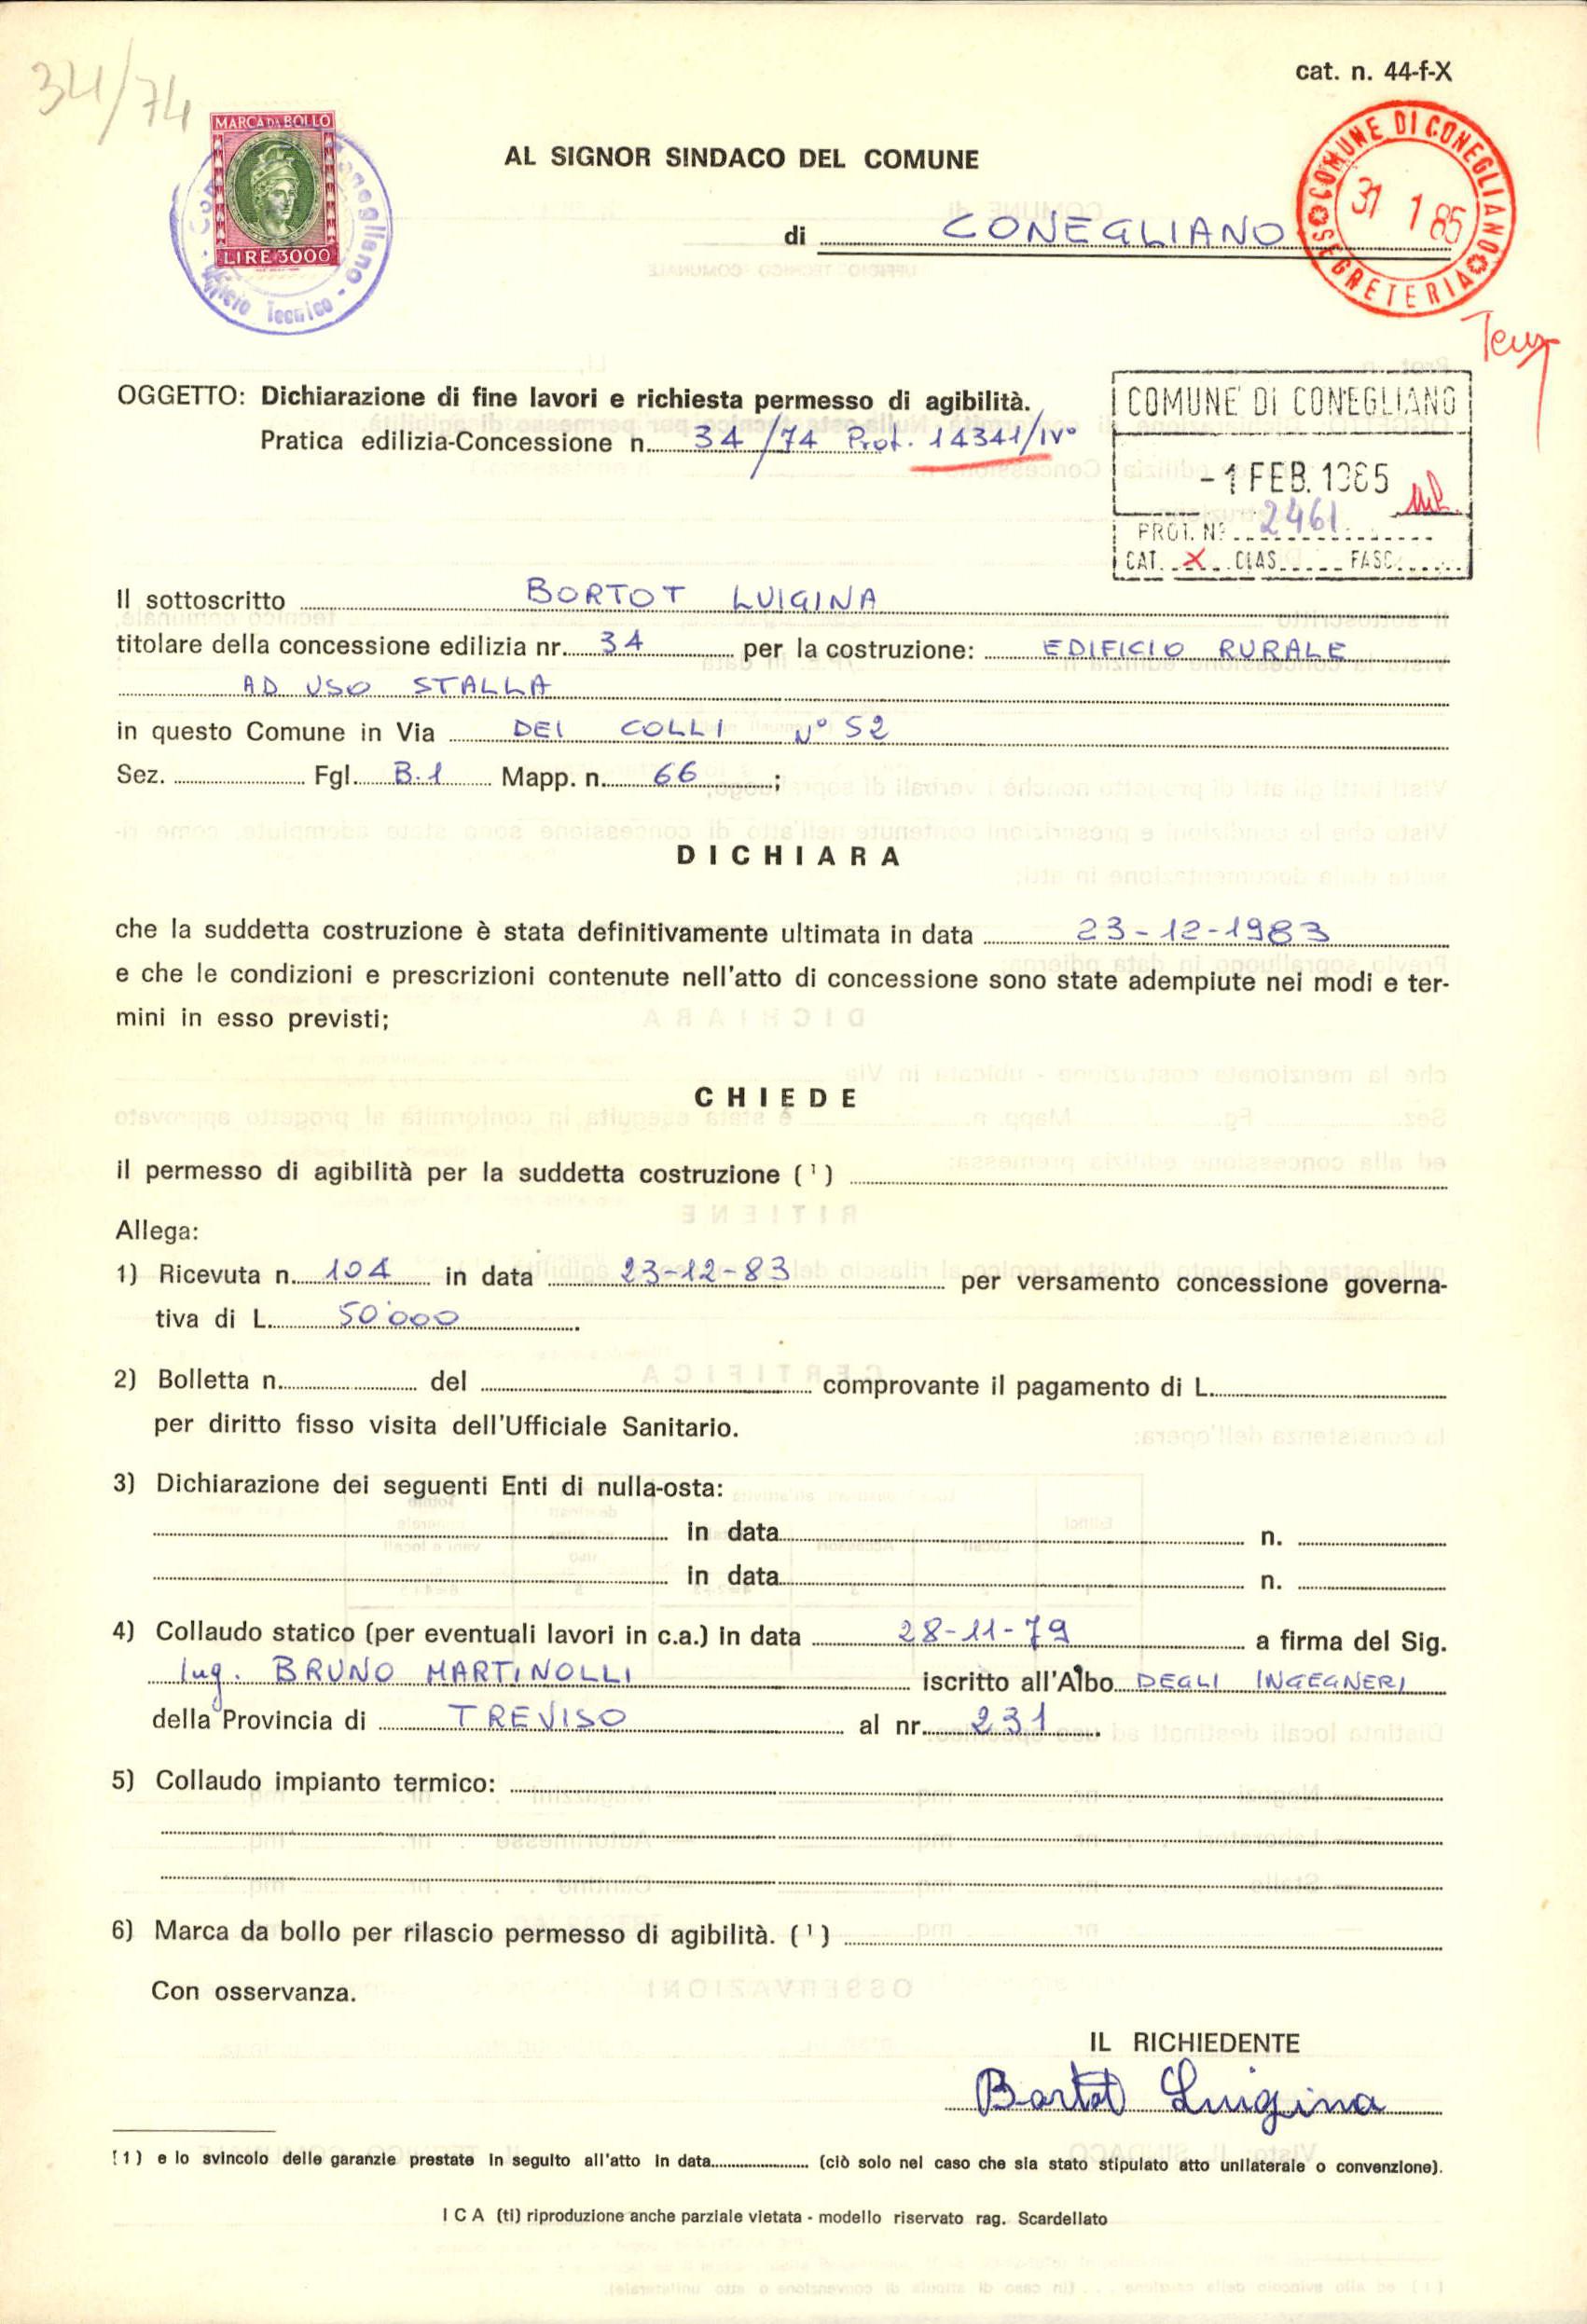 34/74
cat. n. 44-f-X
MARCA DA BOLLO
LIRE 3000
Conegliano - Ufficio Tecnico -
AL SIGNOR SINDACO DEL COMUNE
di CONEGLIANO
COMUNE DI CONEGLIANO SEGRETERIA
31 1 85
OGGETTO: Dichiarazione di fine lavori e richiesta permesso di agibilità.
Pratica edilizia-Concessione n. 34/74 Prot. 14341/IV°
COMUNE DI CONEGLIANO
-1 FEB. 1985
PROT. N° 2461
CAT. X CLAS. FASC.
Il sottoscritto BORTOT LUIGINA
titolare della concessione edilizia nr. 34 per la costruzione: EDIFICIO RURALE
AD USO STALLA
in questo Comune in Via DEI COLLI N° 52
Sez. Fgl. B.1 Mapp. n. 66 ;
DICHIARA
che la suddetta costruzione è stata definitivamente ultimata in data 23-12-1983
e che le condizioni e prescrizioni contenute nell'atto di concessione sono state adempiute nei modi e ter-
mini in esso previsti;
CHIEDE
il permesso di agibilità per la suddetta costruzione (1)
Allega:
1) Ricevuta n. 104 in data 23-12-83 per versamento concessione governa-
tiva di L. 50'000.
2) Bolletta n. del comprovante il pagamento di L.
per diritto fisso visita dell'Ufficiale Sanitario.
3) Dichiarazione dei seguenti Enti di nulla-osta:
in data n.
in data n.
4) Collaudo statico (per eventuali lavori in c.a.) in data 28-11-79 a firma del Sig.
Ing. BRUNO MARTINOLLI iscritto all'Albo DEGLI INGEGNERI
della Provincia di TREVISO al nr. 231.
5) Collaudo impianto termico:
6) Marca da bollo per rilascio permesso di agibilità. (1)
Con osservanza.
IL RICHIEDENTE
Bortot Luigina
(1) e lo svincolo delle garanzie prestate in seguito all'atto in data (ciò solo nel caso che sia stato stipulato atto unilaterale o convenzione).
ICA (ti) riproduzione anche parziale vietata - modello riservato rag. Scardellato